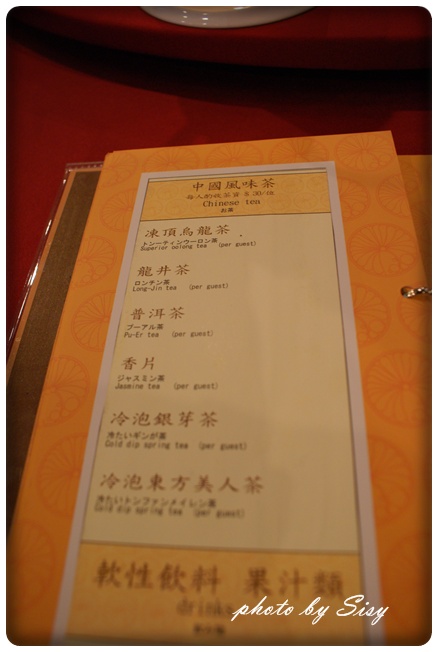 中國風味茶
每人酌收茶資 $.30/位
Chinese tea
お茶
凍頂烏龍茶
トンーティンウーロン茶
Superier oolong tea (per guest)
龍井茶
ロンチン茶
Long-Jin tea (per guest)
普洱茶
プーアル茶
Pu-Er tea (per guest)
香片
ジャスミン茶
Jasmine tea (per guest)
冷泡銀芽茶
冷たいギンが茶
Cold dip spring tea (per guest)
冷泡東方美人茶
冷たいトンファンメイレン茶
Cold dip spring tea (per guest)
軟性飲料 果汁類
drinks
photo by Sisy